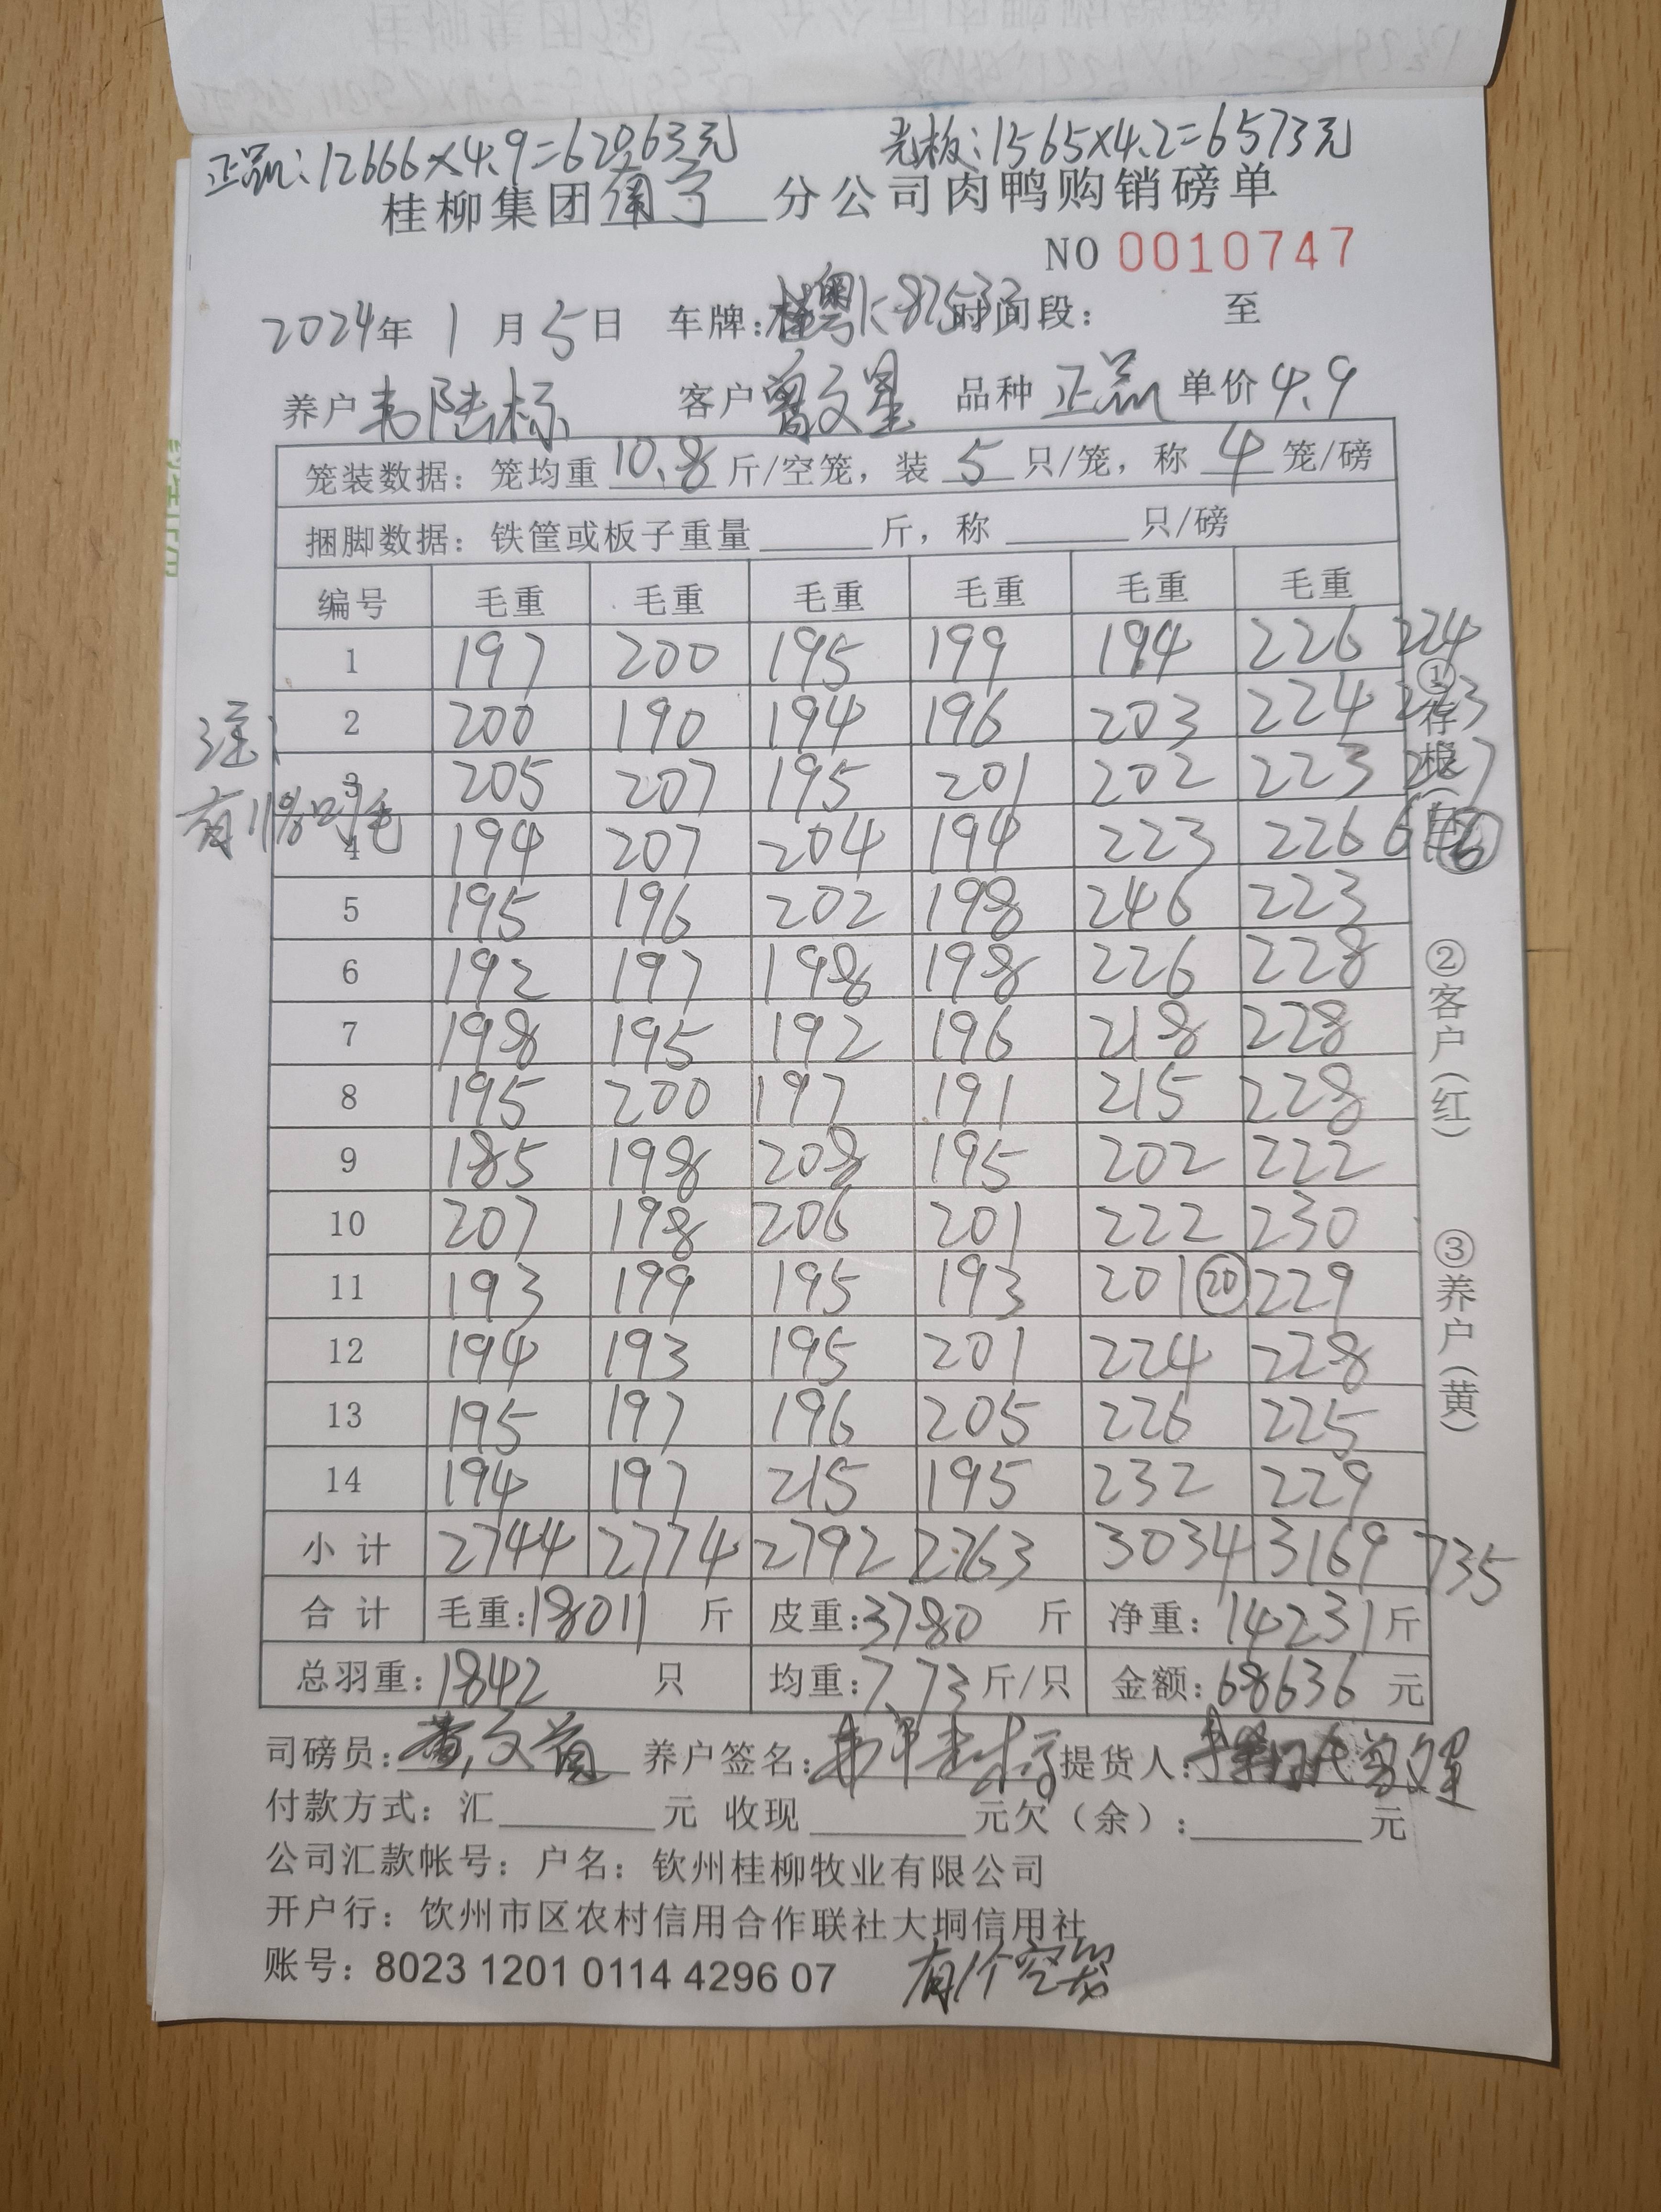 正品:12666×4.9=62063元 光板:1565×4.2=6573元
桂柳集团南宁分公司肉鸭购销磅单
NO 0010747
2024年1月5日 车牌:粤K87533 时间段: 至
养户韦陆标 客户曾文星 品种正品 单价4.9
笼装数据:笼均重10.8斤/空笼,装5只/笼,称4笼/磅
捆脚数据:铁筐或板子重量 斤,称 只/磅
编号 毛重 毛重 毛重 毛重 毛重 毛重
1 197 200 195 199 194 226 224
2 200 190 194 196 203 224
3 205 207 195 201 202 223
4 194 207 204 194 223 226
5 195 196 202 198 246 223
6 192 197 198 198 226 228
7 198 195 192 196 218 228
8 195 200 197 191 215 228
9 185 198 208 195 202 222
10 207 198 206 201 222 230
11 193 199 195 193 201 20 229
12 194 193 195 201 224 228
13 195 197 196 205 226 225
14 194 197 215 195 232 229
小计 2744 2774 2792 2763 3034 3169 735
合计 毛重:18011 斤 皮重:3780 斤 净重:14231斤
总羽重:1842 只 均重:7.73斤/只 金额:68636 元
注:
有 只毛
①存根
②客户(红)
③养户(黄)
司磅员: 养户签名: 提货人:
付款方式:汇 元 收现 元欠(余): 元
公司汇款帐号:户名:钦州桂柳牧业有限公司
开户行:钦州市区农村信用合作联社大垌信用社
账号:8023 1201 0114 4296 07 有1个空笼